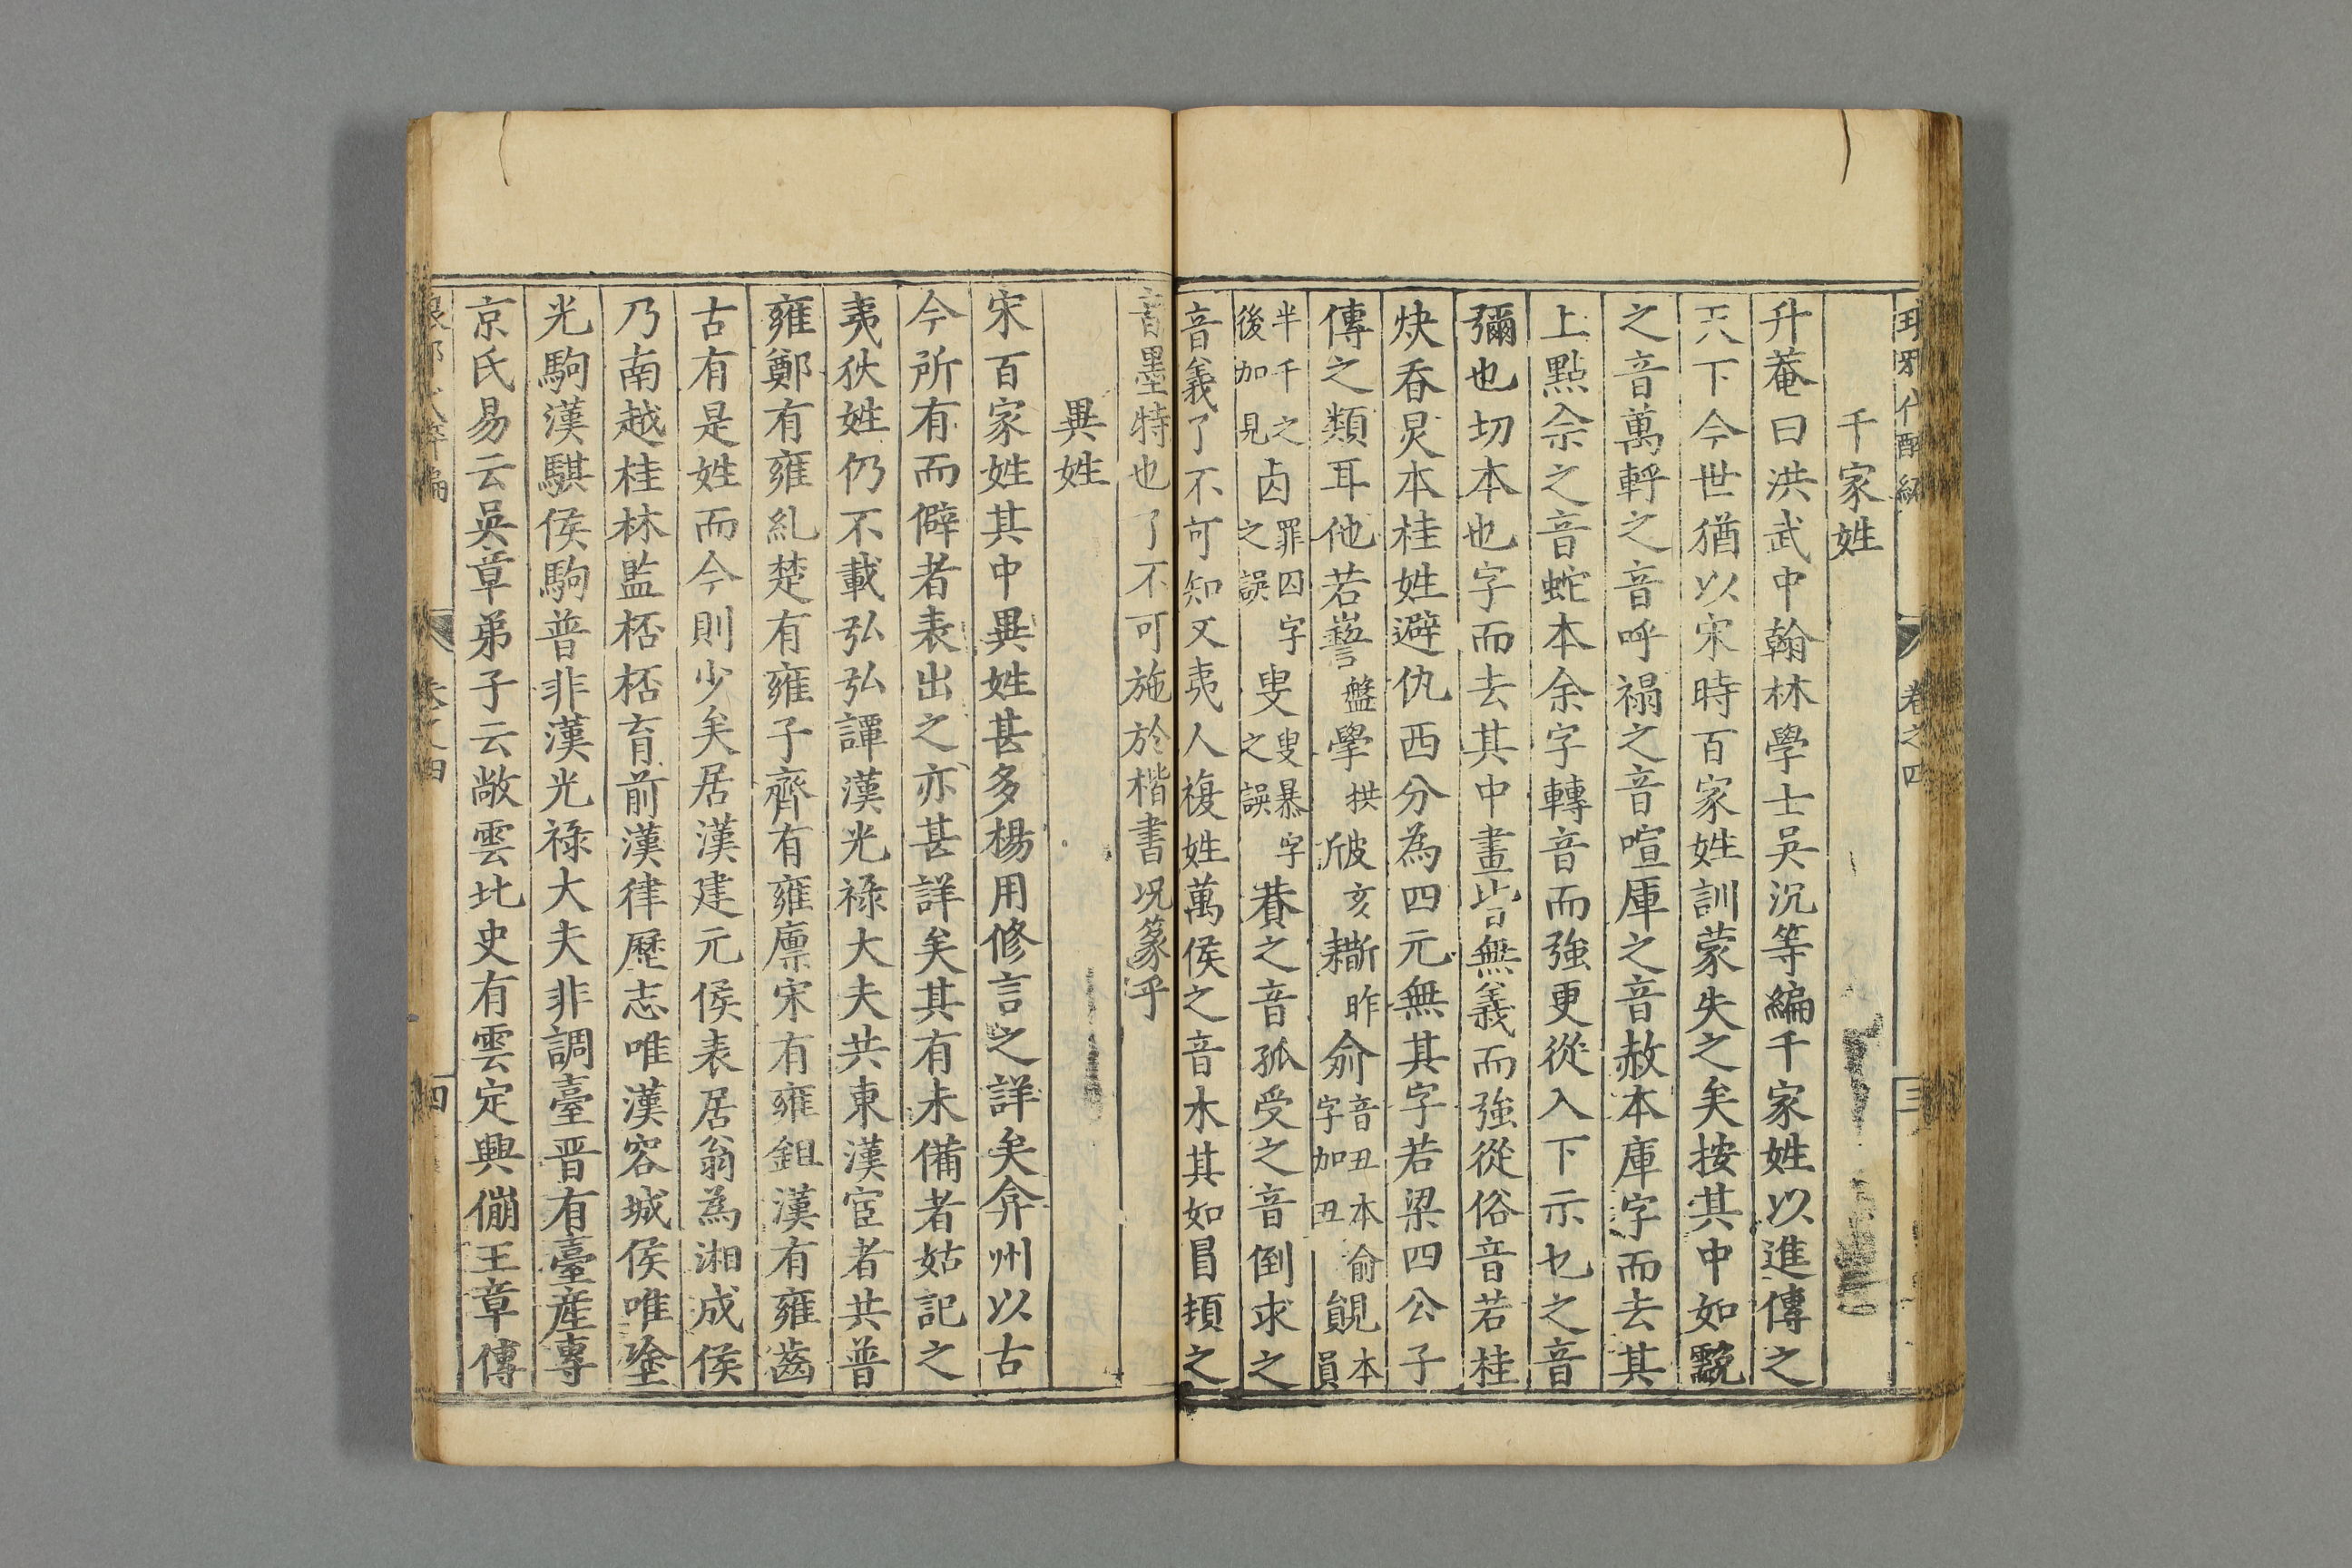 千家姓
升菴曰洪武中翰林學士吳沉等編千家姓以進傳之
天下今世猶以宋時百家姓訓蒙失之矣按其中如
之音萬軤之音呼禢之音喧厙之音赦本庫字而去其
上點佘之音蛇本余字轉音而強更從入下示也乜之音
彌也切本也字而去其中畫皆無義而強從俗音若桂
炔吞炅本桂姓避仇西分為四元無其字若梁四公子
傳之類耳他若 盤 拱 亥 昨 音丑本俞字加丑 本員
半千之後加見 卤罪囚字之誤 叟暴字之誤 之音孤受之音倒求之
音義了不可知又夷人複姓萬侯之音木其如冒頓之
音墨特也了不可施於楷書况篆乎
異姓
宋百家姓其中異姓甚多楊用修言之詳矣弇州以古
今所有而僻者表出之亦甚詳矣其有未備者姑記之
夷狄姓仍不載弘弘譚漢光祿大夫共東漢宦者共普
雍鄭有雍糺楚有雍子齊有雍廩宋有雍鉏漢有雍齒
古有是姓而今則少矣居漢建元侯表居翁為湘成侯
乃南越桂林監桮桮育前漢律歷志唯漢容城侯唯塗
光駒漢騏侯駒普非漢光祿大夫非調臺晋有臺產專
京氏易云吳章弟子云敞雲北史有雲定興傰王章傳
卷之四
四